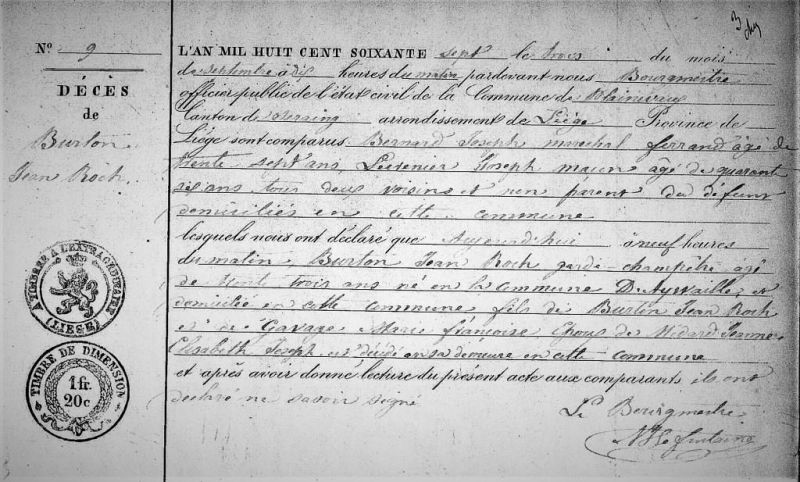 Nº 9
DÉCÈS
de
Burton
Jean Roch
A TIMBRER A L'EXTRAORDINAIRE
(LIEGE)
TIMBRE DE DIMENSION
1 fr.
20c
3
L'AN MIL HUIT CENT SOIXANTE sept le trois du mois
de septembre à dix heures du matin pardevant nous Bourgmestre
officier public de l'état civil de la Commune de
Canton de Seraing arrondissement de Liége Province de
Liége sont comparus Bernard Joseph maréchal ferrand âgé de
trente sept ans, Joseph maçon âgé de quarante
six ans tous deux voisins et non parent du défunt
domiciliés en cette commune
lesquels nous ont déclaré que Aujourd'hui à neuf heures
du matin Burton Jean Roch garde-champêtre âgé
de trente trois ans né en la commune D'Aywaille et
domicilié en cette commune fils de Burton Jean Roch
et de Gavage Marie françoise Epoux de Médard Jeanne
Elisabeth Joseph est décédé en sa demeure en cette commune
et après avoir donné lecture du présent acte aux comparants ils ont
déclaré ne savoir signé
Le Bourgmestre